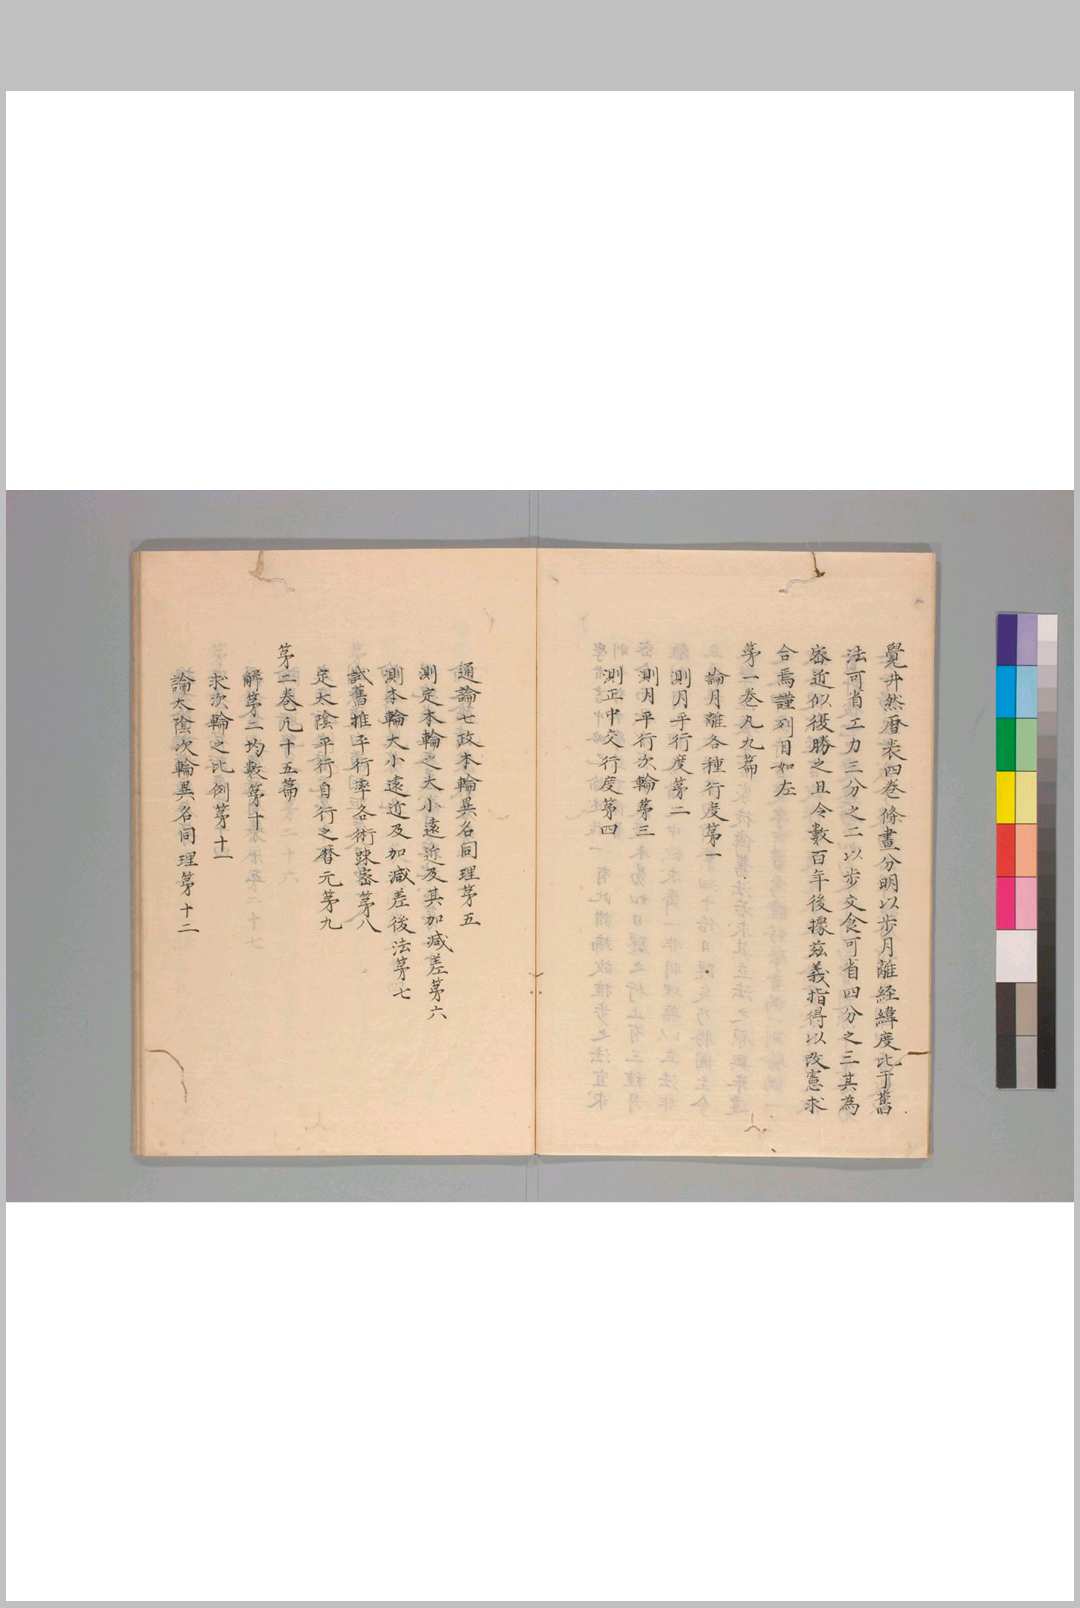 覺井然暦表四巻條畫分明以步月離経緯度比于舊
法可省工力三分之二以步交食可省四分之三其為
密近似後勝之且令數百年後據兹義指得以改憲求
合焉謹列目如左
第一巻凢九篇
論月離各種行度第一
測月平行度第二
測月平行次輪第三
測正中交行度第四
通論七政本輪異名同理第五
測定本輪之大小遠近及其加减差第六
測本輪大小遠近及加减差後法第七
試舊推平行率各術踈密第八
定太陰平行自行之暦元第九
第二巻凢十五篇
解第二均數第十
求次輪之比例第十一
論太陰次輪異名同理第十二